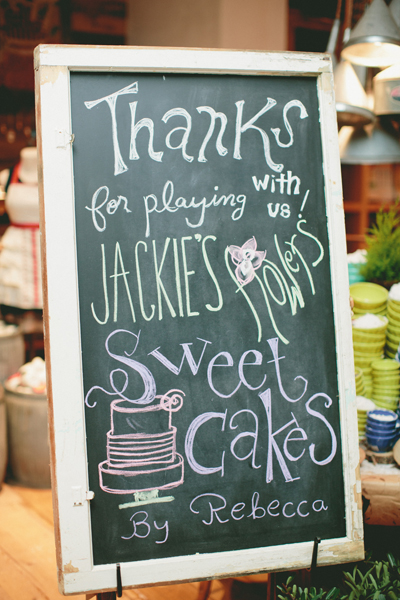 Thanks
for playing with us!
JACKIE'S Flowers
Sweet
Cakes
By Rebecca